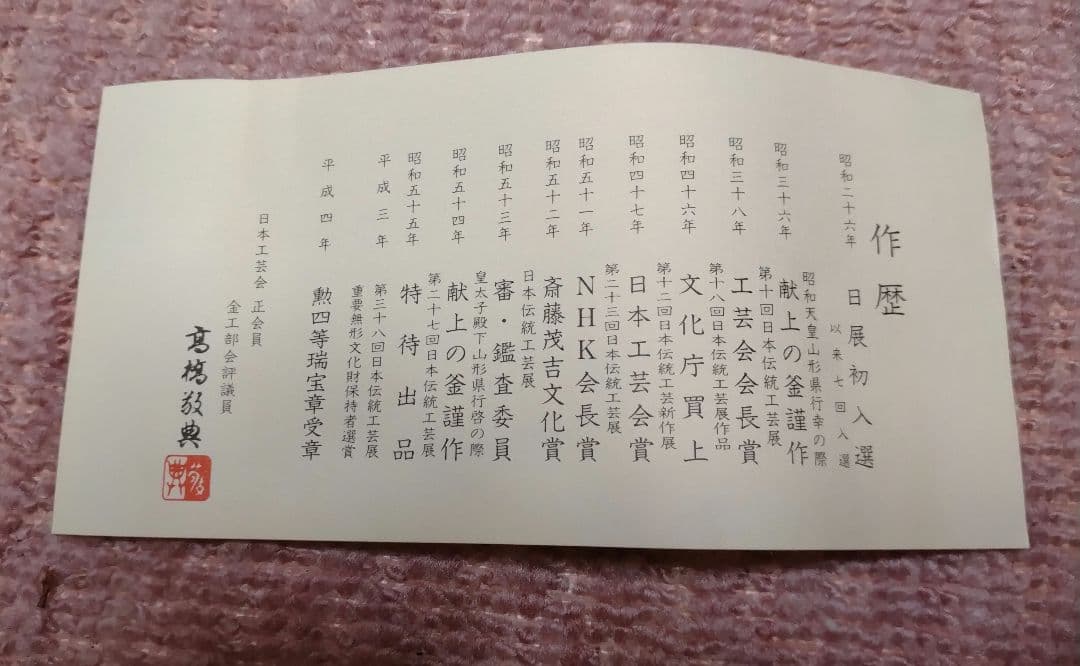 作歴
昭和二十六年 日展初入選
以来七回入選
昭和天皇山形県行幸の際
昭和三十六年 献上の釜謹作
第十回日本伝統工芸展
昭和三十八年 工芸会会長賞
第十八回日本伝統工芸展作品
昭和四十六年 文化庁買上
第十二回日本伝統工芸新作展
昭和四十七年 日本工芸会賞
第二十三回日本伝統工芸展
昭和五十一年 NHK会長賞
昭和五十二年 斎藤茂吉文化賞
日本伝統工芸展
昭和五十三年 審・鑑査委員
皇太子殿下山形県行啓の際
昭和五十四年 献上の釜謹作
第二十七回日本伝統工芸展
昭和五十五年 特待出品
平成三年 第三十八回日本伝統工芸展
重要無形文化財保持者選賞
平成四年 勲四等瑞宝章受章
日本工芸会 正会員
金工部会評議員
高橋敬典